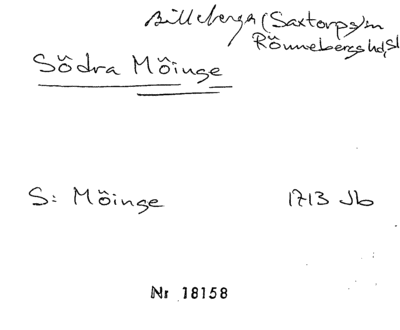 Billeberga (Saxtorps) sn
Rönnebergs hd, Sk
Södra Möinge
S: Möinge 1713 Jb
Nr 18158